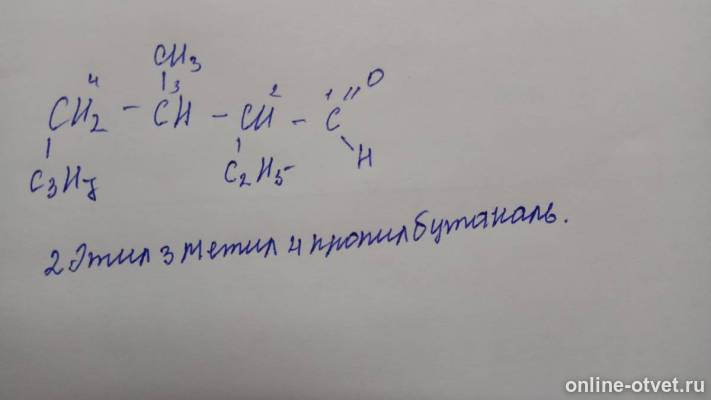 CH3
4 3 2 1 O
CH2 - CH - CH - C
H
C3H7 C2H5
2 Этил 3 метил 4 пропил бутаналь.
online-otvet.ru